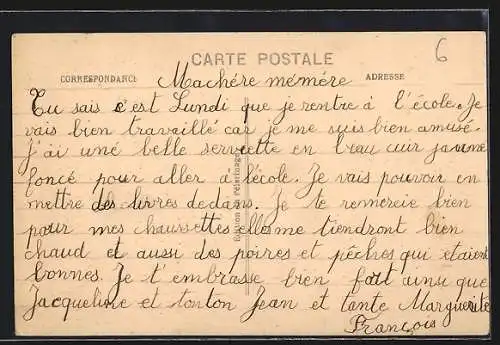 6
CARTE POSTALE
CORRESPONDANCE
ADRESSE
Machére mémére
Tu sais c'est Lundi que je rentre à l'école. Je
vais bien travaillé car je me suis bien amusé.
J'ai une belle serviette en beau cuir jaune
foncé pour aller à l'école. Je vais pouvoir en
mettre des livres dedans. Je te remercie bien
pour mes chaussettes elles me tiendront bien
chaud et aussi des poires et pêches qui etaient
bonnes. Je t'embrasse bien fort ainsi que
Jacqueline et tonton Jean et tante Marguerite
François